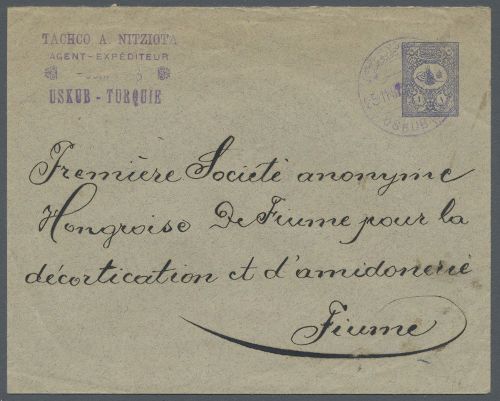 TACHCO A. NITZIOTA
AGENT-EXPÉDITEUR
USKUB - TURQUIE
USKUB
1 1
Première Société anonyme
Hongroise De Fiume pour la
décortication et d'amidonerie
Fiume